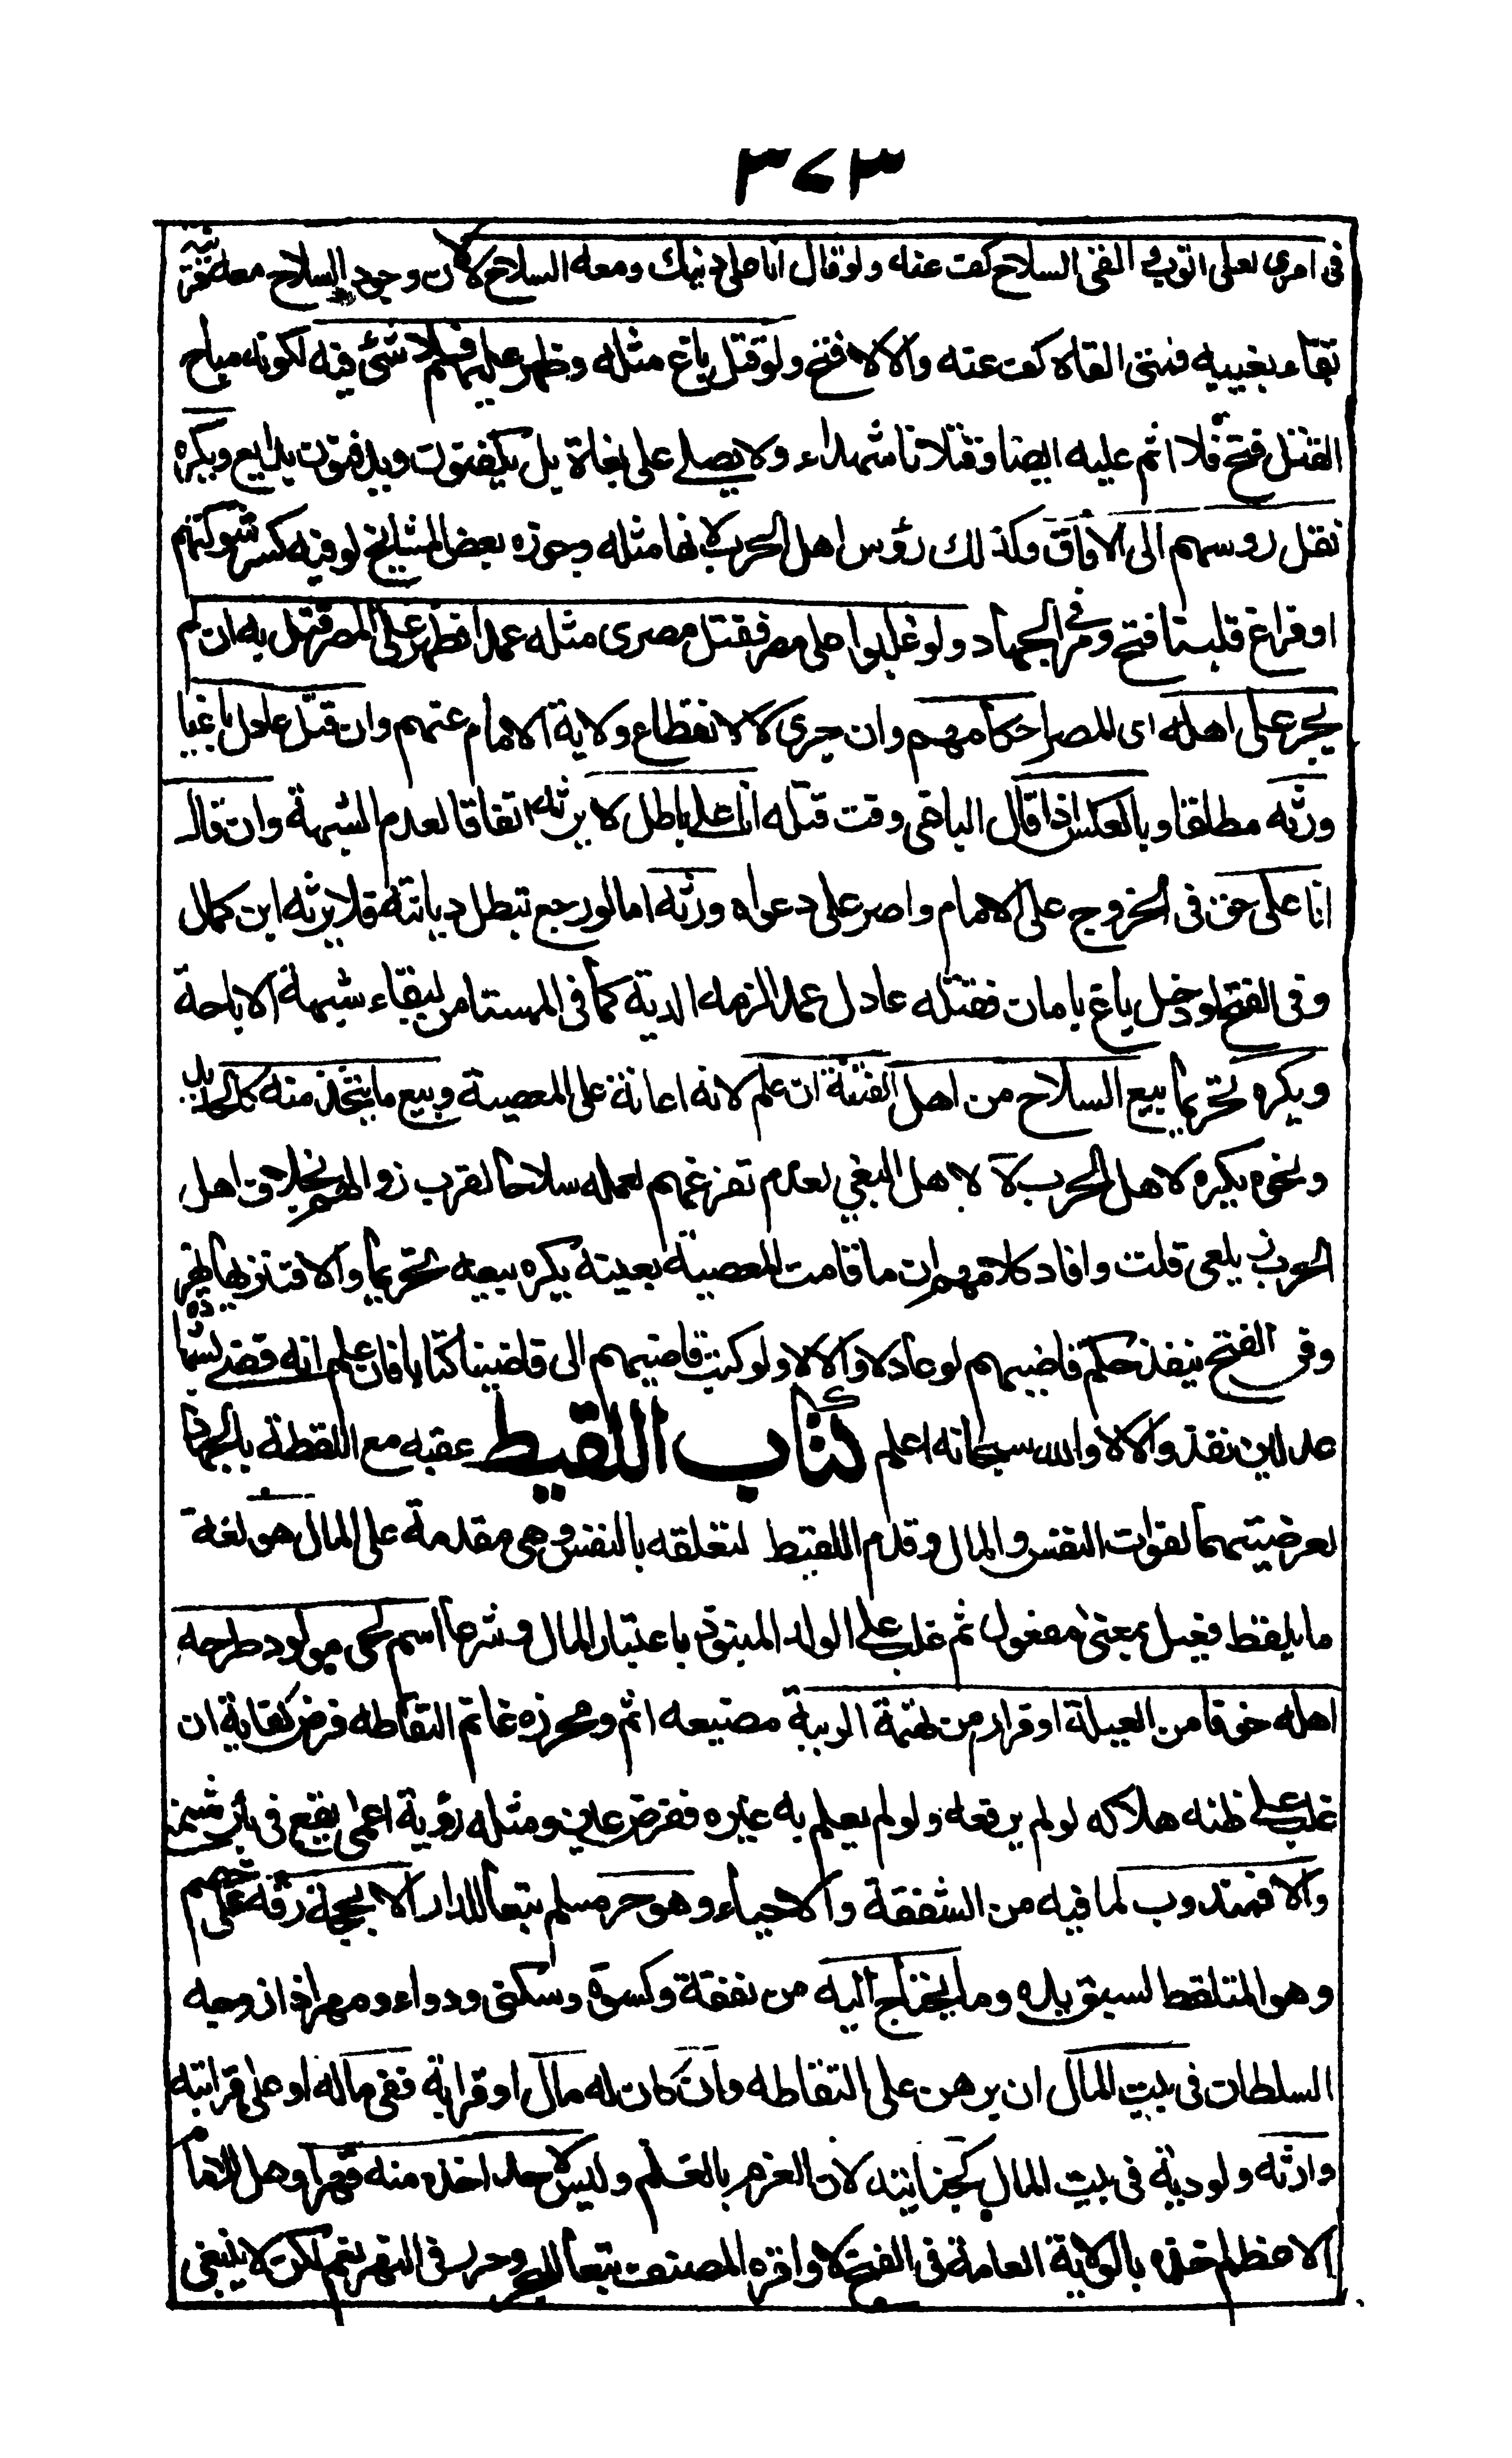 ٣٧٣
فى امرى لعلى اتوب والقى السلاح كفت عنه ولو قال انا على دينك ومعه السلاح لا لان وجود السلاح معه قرينة
بقاء بغييه فمتى القاه كف عنه والا لا فتح ولو قتل باغ مثله وظهر عليهم فلا شئ فيه لكونه مباح
القتل فتح فلا اثم عليه ايضا وقتلانا شهداء ولا يصلى على بغاة بل يكفنون ويدفنون بدايع ويكره
نقل روسهم الى الافاق وكذلك رؤس اهل الحرب لانها مثله وجوزه بعض المشايخ لو فيه كسر شوكتهم
او فراغ قلبنا فتح ومر فى الجهاد ولو غلبوا على مصر فقتل مصرى مثله عمدا فظهر على المصر قتل به ان لم
يجر على اهله اى المصر احكامهم وان جرى لا لانقطاع ولاية الامام عنهم وان قتل عادل باغيا
ورثه مطلقا وبالعكس اذا قال الباغى وقت قتله انا على باطل لا يرثه اتفاقا لعدم الشبهة وان قال
انا على حق فى الخروج على الامام واصر على دعواه ورثه اما لو رجع تبطل ديانته فلا يرثه ابن كمال
وفى الفتح لو دخل باغ بامان فقتله عادل عمدا لزمه الدية كما فى المستامن لبقاء شبهة الاباحة
ويكره تحريما بيع السلاح من اهل الفتنة ان علم لانه اعانة على المعصية وبيع ما يتخذ منه كالحديد
ونحوه يكره لاهل الحرب لا لاهل البغى لعدم تفرغهم لعمله سلاحا لقرب زوالهم بخلاف اهل
الحرب زيلعى قلت وافاد كلامهم ان ما قامت المعصية بعينه يكره بيعه تحريما والا فتنزيها نهر
وفى الفتح ينفذ حكم قاضيهم لو عادلا والا لا ولو كتب قاضيهم الى قاضينا كتابا فان علم انه قضى بشهادة
عدلين نفذ والا لا والله سبحانه اعلم كتاب اللقيط عقبه مع اللقطة بالجهاد
لعرضيتهما لفوات النفس والمال وقدم اللقيط لتعلقه بالنفس وهى مقدمة على المال هو لغة
ما يلقط فعيل بمعنى مفعول ثم غلب على الولد المنبوذ باعتبار المال وشرعا اسم لحى مولود طرحه
اهله خوفا من العيلة او فرارا من تهمة الريبة مضيعه اثم ومحرزه غانم التقاطه فرض كفاية ان
غلب على ظنه هلاكه لو لم يرفعه ولو لم يعلم به غيره ففرض عين ومثله رؤية اعمى يقع فى بئر شمنى
والا فمندوب لما فيه من الشفقة والاحياء وهو حر مسلم تبعا للدار الا بحجة رقه على خصم
وهو الملتقط لسبق يده وما يحتاج اليه من نفقة وكسوة وسكنى ودواء ومهر اذا زوجه
السلطان فى بيت المال ان برهن على التقاطه وان كان له مال او قرابة ففى ماله او على قرابته
وارثه ولو دية فى بيت المال كجنايته لان الغرم بالغنم وليس لاحد اخذه منه قهرا وهل للامام
الاعظم اخذه بالولاية العامة فى الفتح لا واقره المصنف تبعا للبحر وحرر فى النهر نعم لكن لا ينبغى